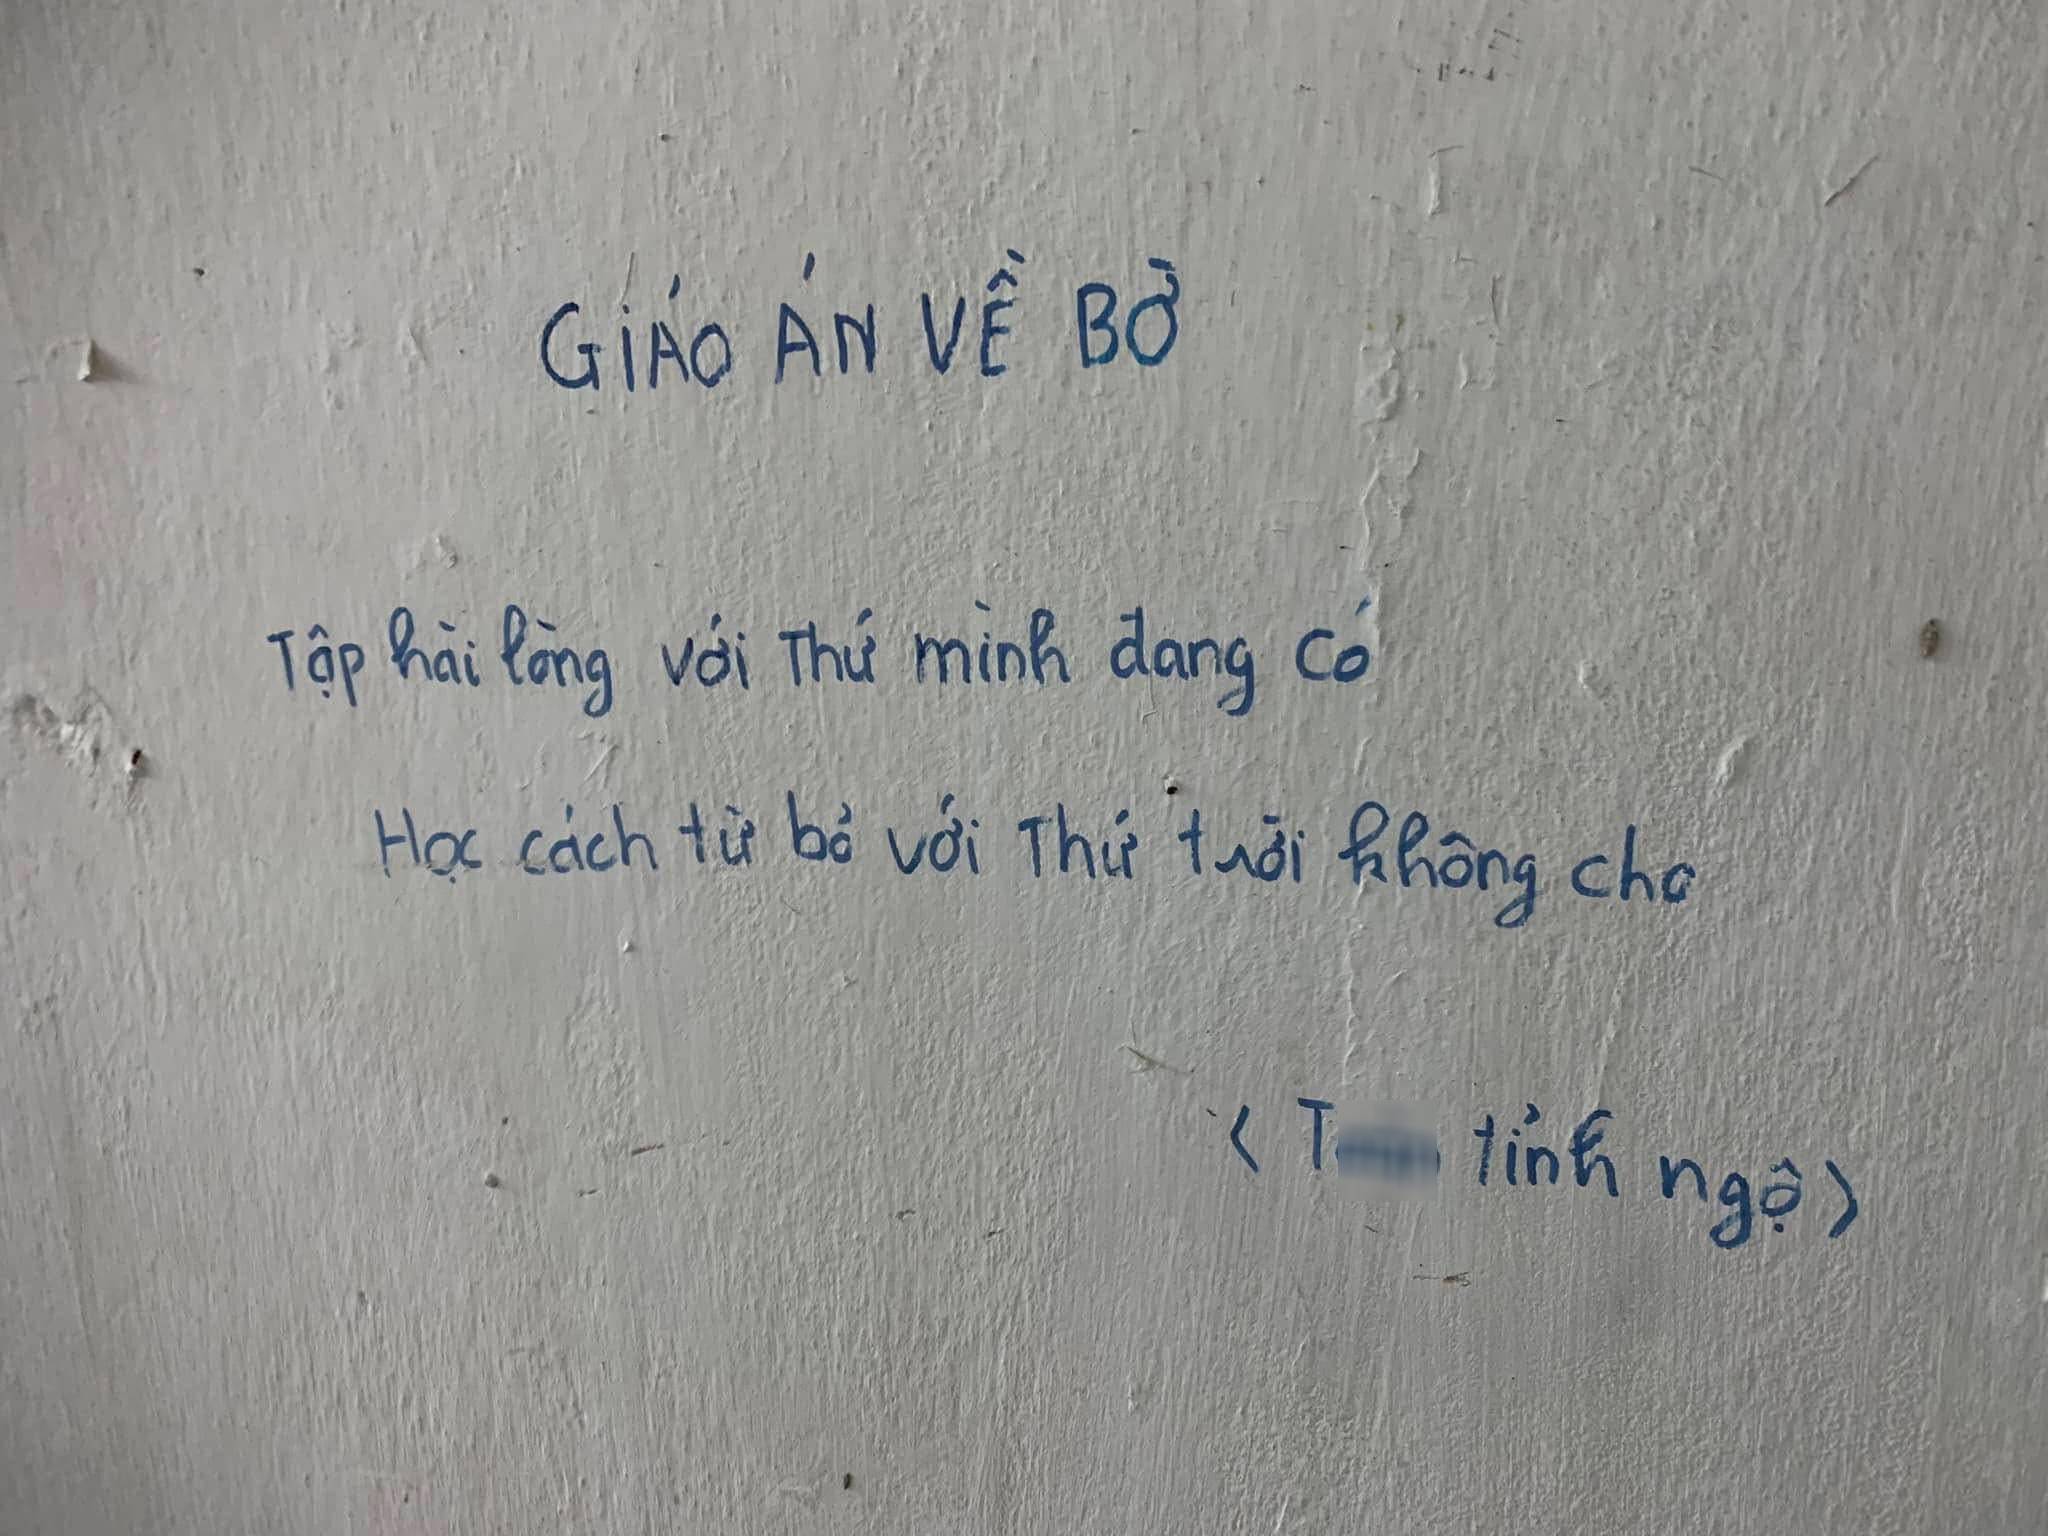 GIÁO ÁN VỀ BỜ
Tập hài lòng với Thứ mình đang có
Học cách từ bỏ với Thứ trời không cho
< tỉnh ngộ >